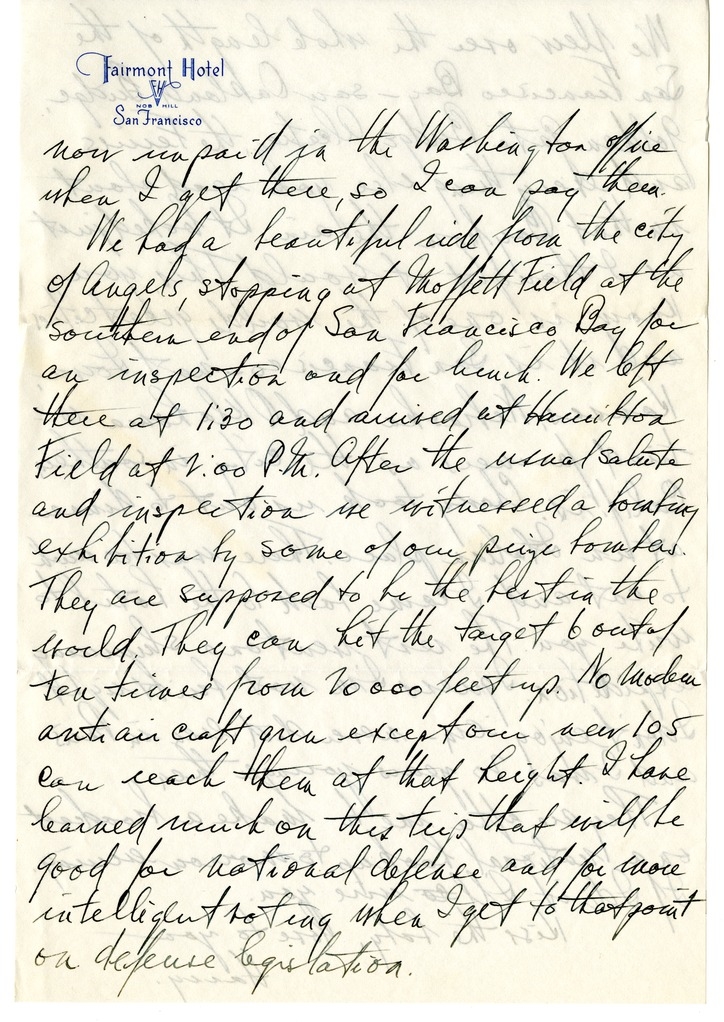 Fairmont Hotel
FH
NOB HILL
San Francisco
now unpaid in the Washington office
when I get there, so I can pay them.
We had a beautiful ride from the city
of Angels, stopping at Moffett Field at the
southern end of San Francisco Bay for
an inspection and for lunch. We left
there at 1:30 and arrived at Hamilton
Field at 2:00 P.M. After the usual salute
and inspection we witnessed a bombing
exhibition by some of our prize bombers.
They are supposed to be the best in the
world. They can hit the target 6 out of
ten times from 20 000 feet up. No modern
antiaircraft gun except our new 105
can reach them at that height. I have
learned much on this trip that will be
good for national defense and for more
intelligent voting when I get to that point
on defense legislation.